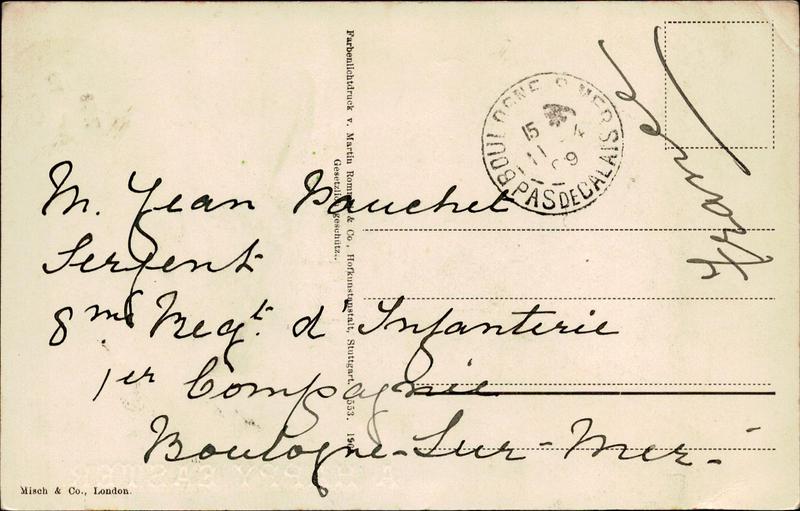 M. Jean Pauchet
Sergent
8me Regt. d'Infanterie
1er Compagnie
Boulogne-Sur-Mer.
France
BOULOGNE S MER
PAS DE CALAIS
15
11
09
Farbenlichtdruck v. Martin Rommel & Co., Hofkunstanstalt, Stuttgart.
Gesetzlich geschützt.
Misch & Co., London.
A HAPPY EASTER